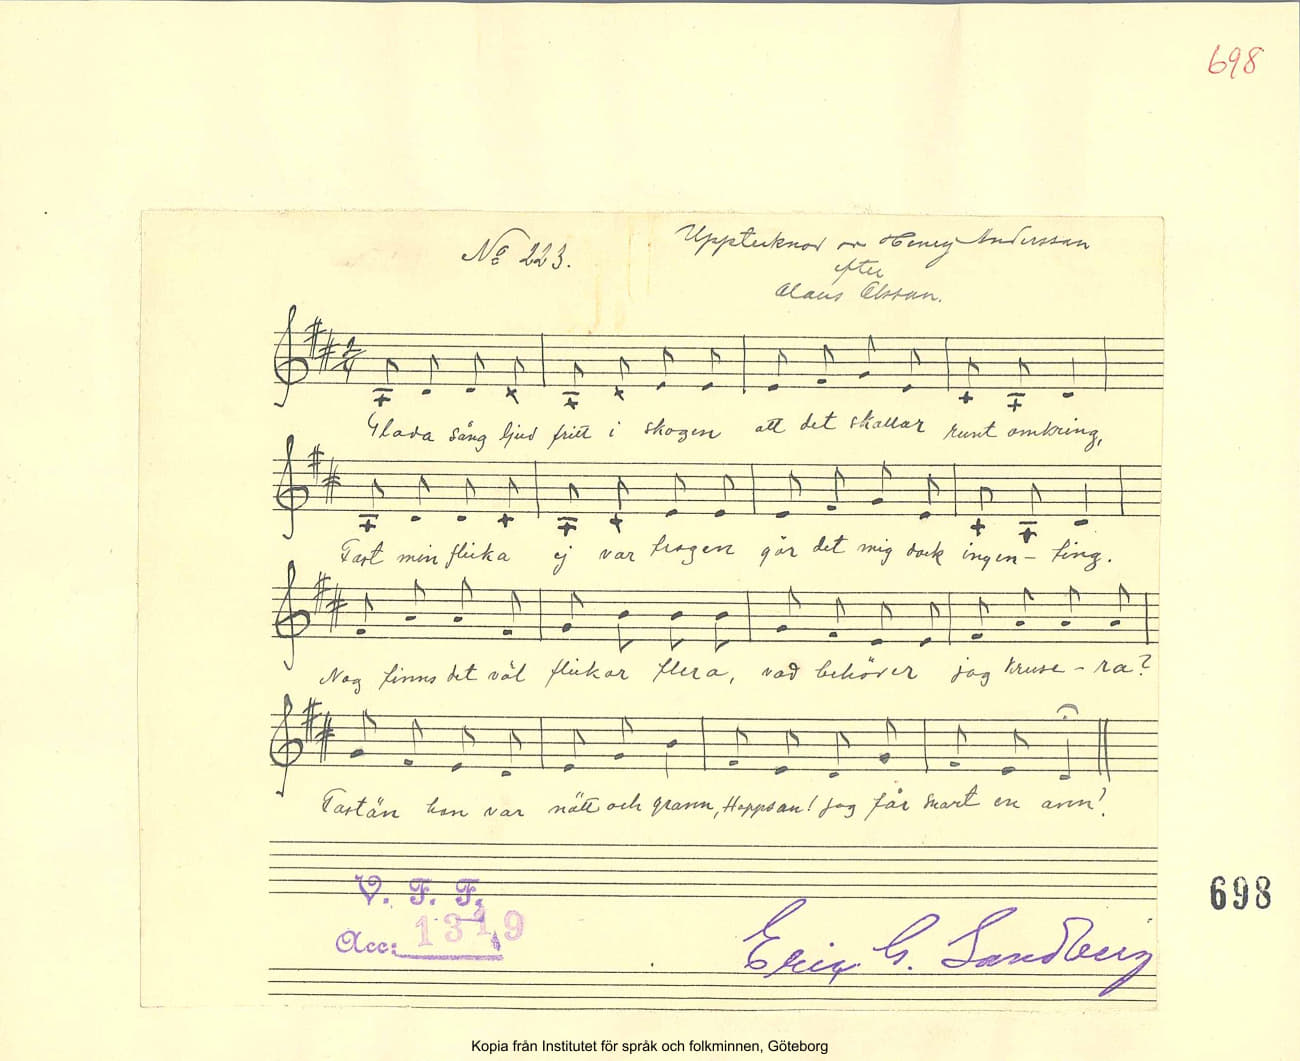 698
No 223.
Upptecknad av Henry Andersson
efter
Claus Olsson.
Glada sång ljud fritt i skogen att det skallar runt omkring,
Fast min flicka ej var trogen gör det mig dock ingen-ting.
Nog finns det väl flickor flera, vad behöver jag kruse-ra?
Fastän hon var nätt och grann, Hoppsan! jag får snart en ann!
V. F. F.
Acc: 1319
698
Erik G. Sandberg
Kopia från Institutet för språk och folkminnen, Göteborg